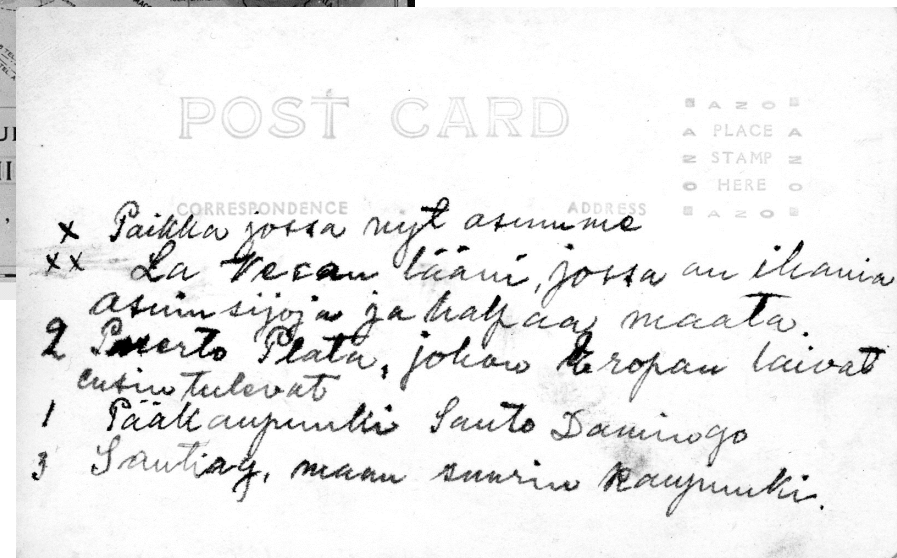 POST CARD
AZO
A PLACE A
Z STAMP Z
O HERE O
AZO
CORRESPONDENCE ADDRESS
x Paikka jossa nyt asumme
xx La Vegan lääni, jossa on ihania
asuinsijoja ja halpaa maata.
2 Puerto Plata, johon Eropan laivat
ensin tulevat
1 Pääkaupunki Santo Domingo
3 Santiag, maan suurin kaupunki.